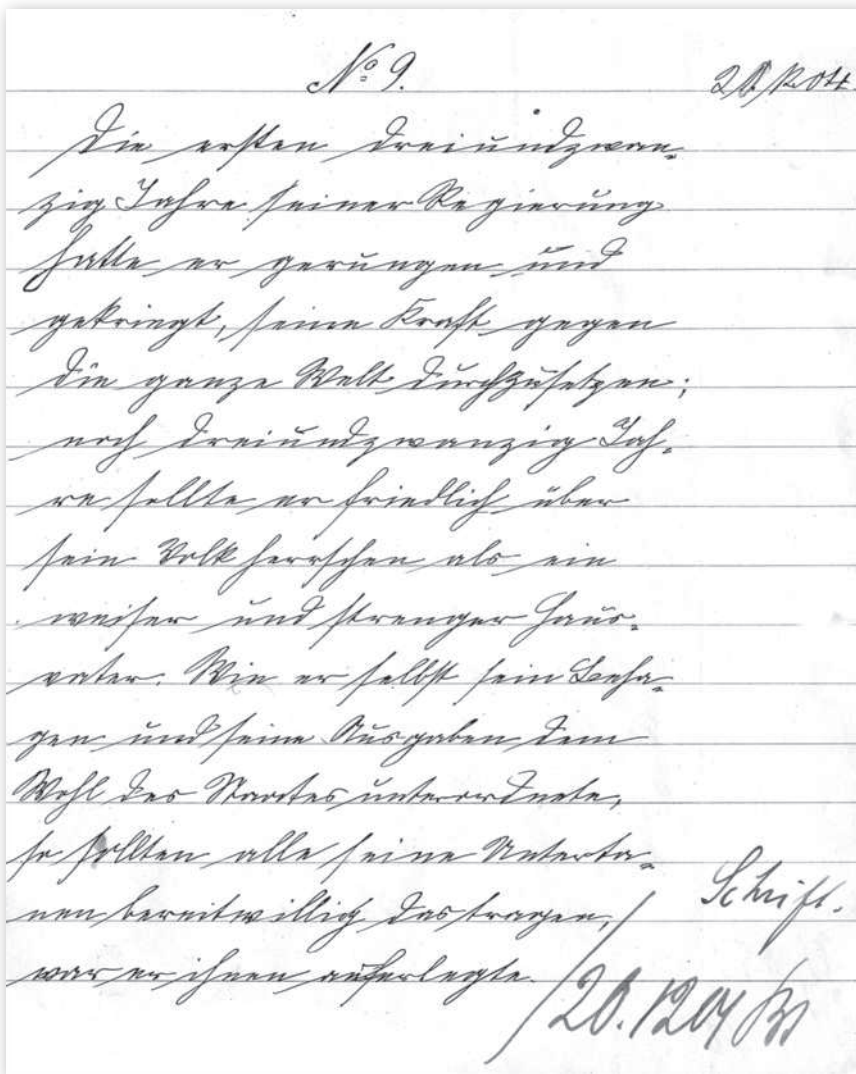 No 9.
Die ersten dreiundzwan-
zig Jahre seiner Regierung
hatte er gerungen und
gekriegt, seine Kraft gegen
die ganze Welt durchzusetzen;
noch dreiundzwanzig Jah-
re sollte er friedlich über
sein Volk herrschen als ein
weiser und strenger Haus-
vater. Wie er selbst sein Beha-
gen und seine Ausgaben dem
Wohl des Staates unterordnete,
so sollten alle seine Unterta-
nen bereitwillig das tragen,
war er ihnen auferlegte.
Schrift.